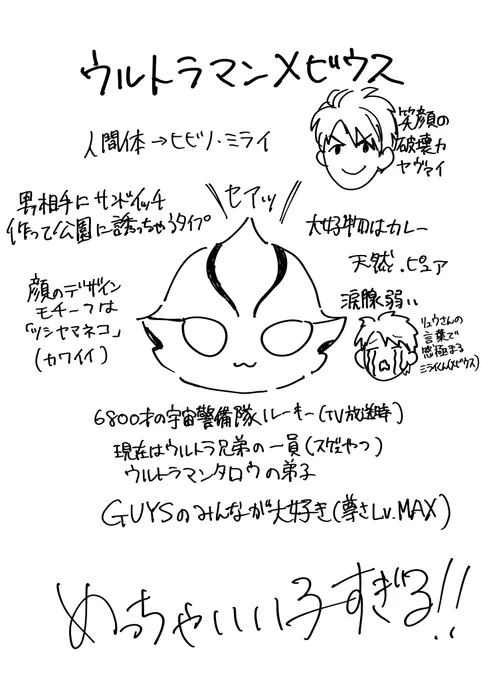 ウルトラマンメビウス
人間体→ヒビノ・ミライ
笑顔の
破壊力
ヤヴァイ
男相手にサンドイッチ
作って公園に誘っちゃうタイプ
セアッ
大好物はカレー
天然.ピュア
涙腺弱い
顔のデザイン
モチーフは
「ツシヤマネコ」
(カワイイ)
リュウさんの
言葉で
感極まる
ミライくん(メビウス)
6800才の宇宙警備隊ルーキー(TV放送時)
現在はウルトラ兄弟の一員(スゲェやつ)
ウルトラマンタロウの弟子
GUYSのみんなが大好き(尊さLv.MAX)
めっちゃいい子すぎる!!